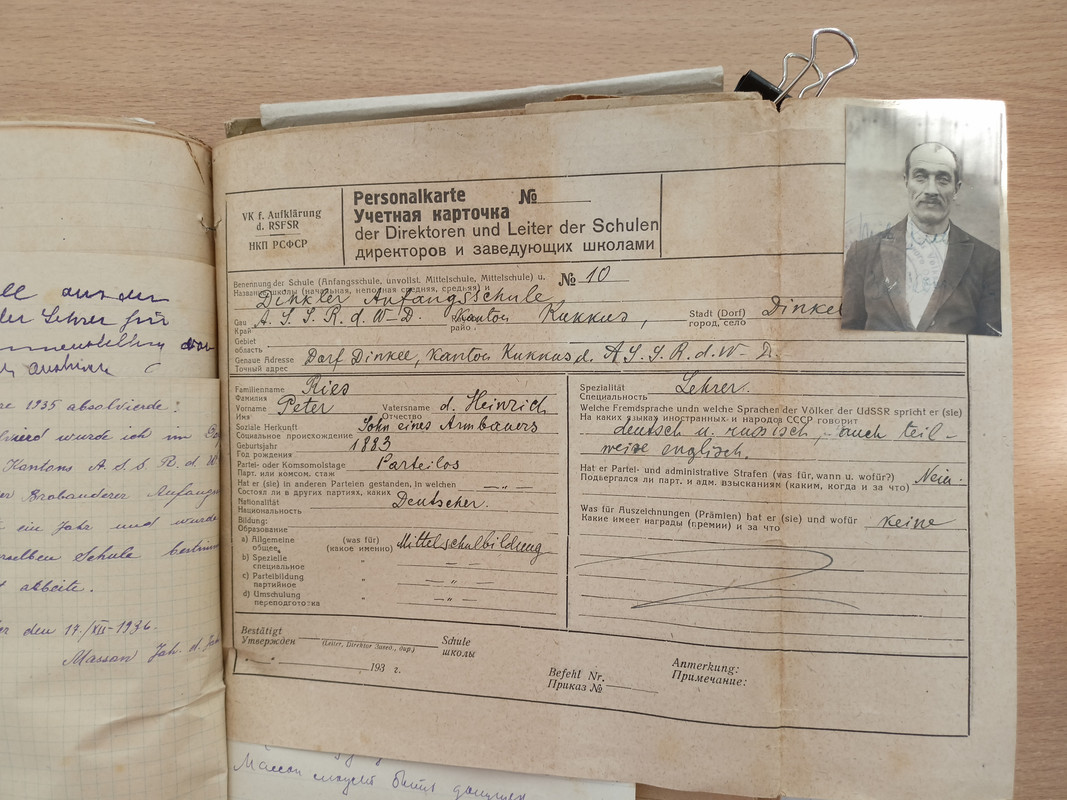 ll aus der
der Lehrer für
re 1935 absolvierde:
wurde ich im
Kantons A. S. S. R. d. W
er Brabanderer Anfangs
ein Jahr und wurde
selben Schule bestimm
arbeite.
er den 17./VII-1936.
Masson Joh. d. Joh
VK f. Aufklärung
d. RSFSR
НКП РСФСР
Personalkarte №
Учетная карточка
der Direktoren und Leiter der Schulen
директоров и заведующих школами
Benennung der Schule (Anfangsschule, unvollst. Mittelschule, Mittelschule) u. № 10
Название школы (начальная, неполная средняя, средняя) и
Dinkler Anfangsschule
Gau A. S. S. R. d. W-D. Kanton Kukkus, Stadt (Dorf) Dinkel
Край район город, село
Gebiet
область
Genaue Adresse Dorf Dinkel, Kanton Kukkus d. A. S. S. R. d. W-D.
Точный адрес
Familienname Ries
Фамилия
Vorname Peter Vatersname d. Heinrich
Имя Отчество
Soziale Herkunft Sohn eines Armbauers
Социальное происхождение
Geburtsjahr 1883
Год рождения
Partei- oder Komsomolstage Parteilos
Парт. или комсом. стаж
Hat er (sie) in anderen Parteien gestanden, in welchen — „ —
Состоял ли в других партиях, каких
Nationalität Deutscher.
Национальность
Bildung:
Образование
a) Allgemeine (was für) Mittelschulbildung
общее, (какое именно)
b) Spezielle " — —
специальное
c) Parteibildung " — „ —
партийное
d) Umschulung " — „ —
переподготовка
Spezialität Lehrer.
Специальность
Welche Fremdsprache und welche Sprachen der Völker der UdSSR spricht er (sie)
На каких языках иностранных и народов СССР говорит
deutsch u. russisch, auch teil-
weise englisch.
Hat er Partei- und administrative Strafen (was für, wann u. wofür?) Nein.
Подвергался ли парт. и адм. взысканиям (каким, когда и за что)
Was für Auszeichnungen (Prämien) hat er (sie) und wofür keine
Какие имеет награды (премии) и за что
Bestätigt Schule
Утвержден (Leiter, Direktor Завед., дир.) школы
" " 193 г.
Befehl Nr.
Приказ №
Anmerkung:
Примечание:
Массон может быть допущен